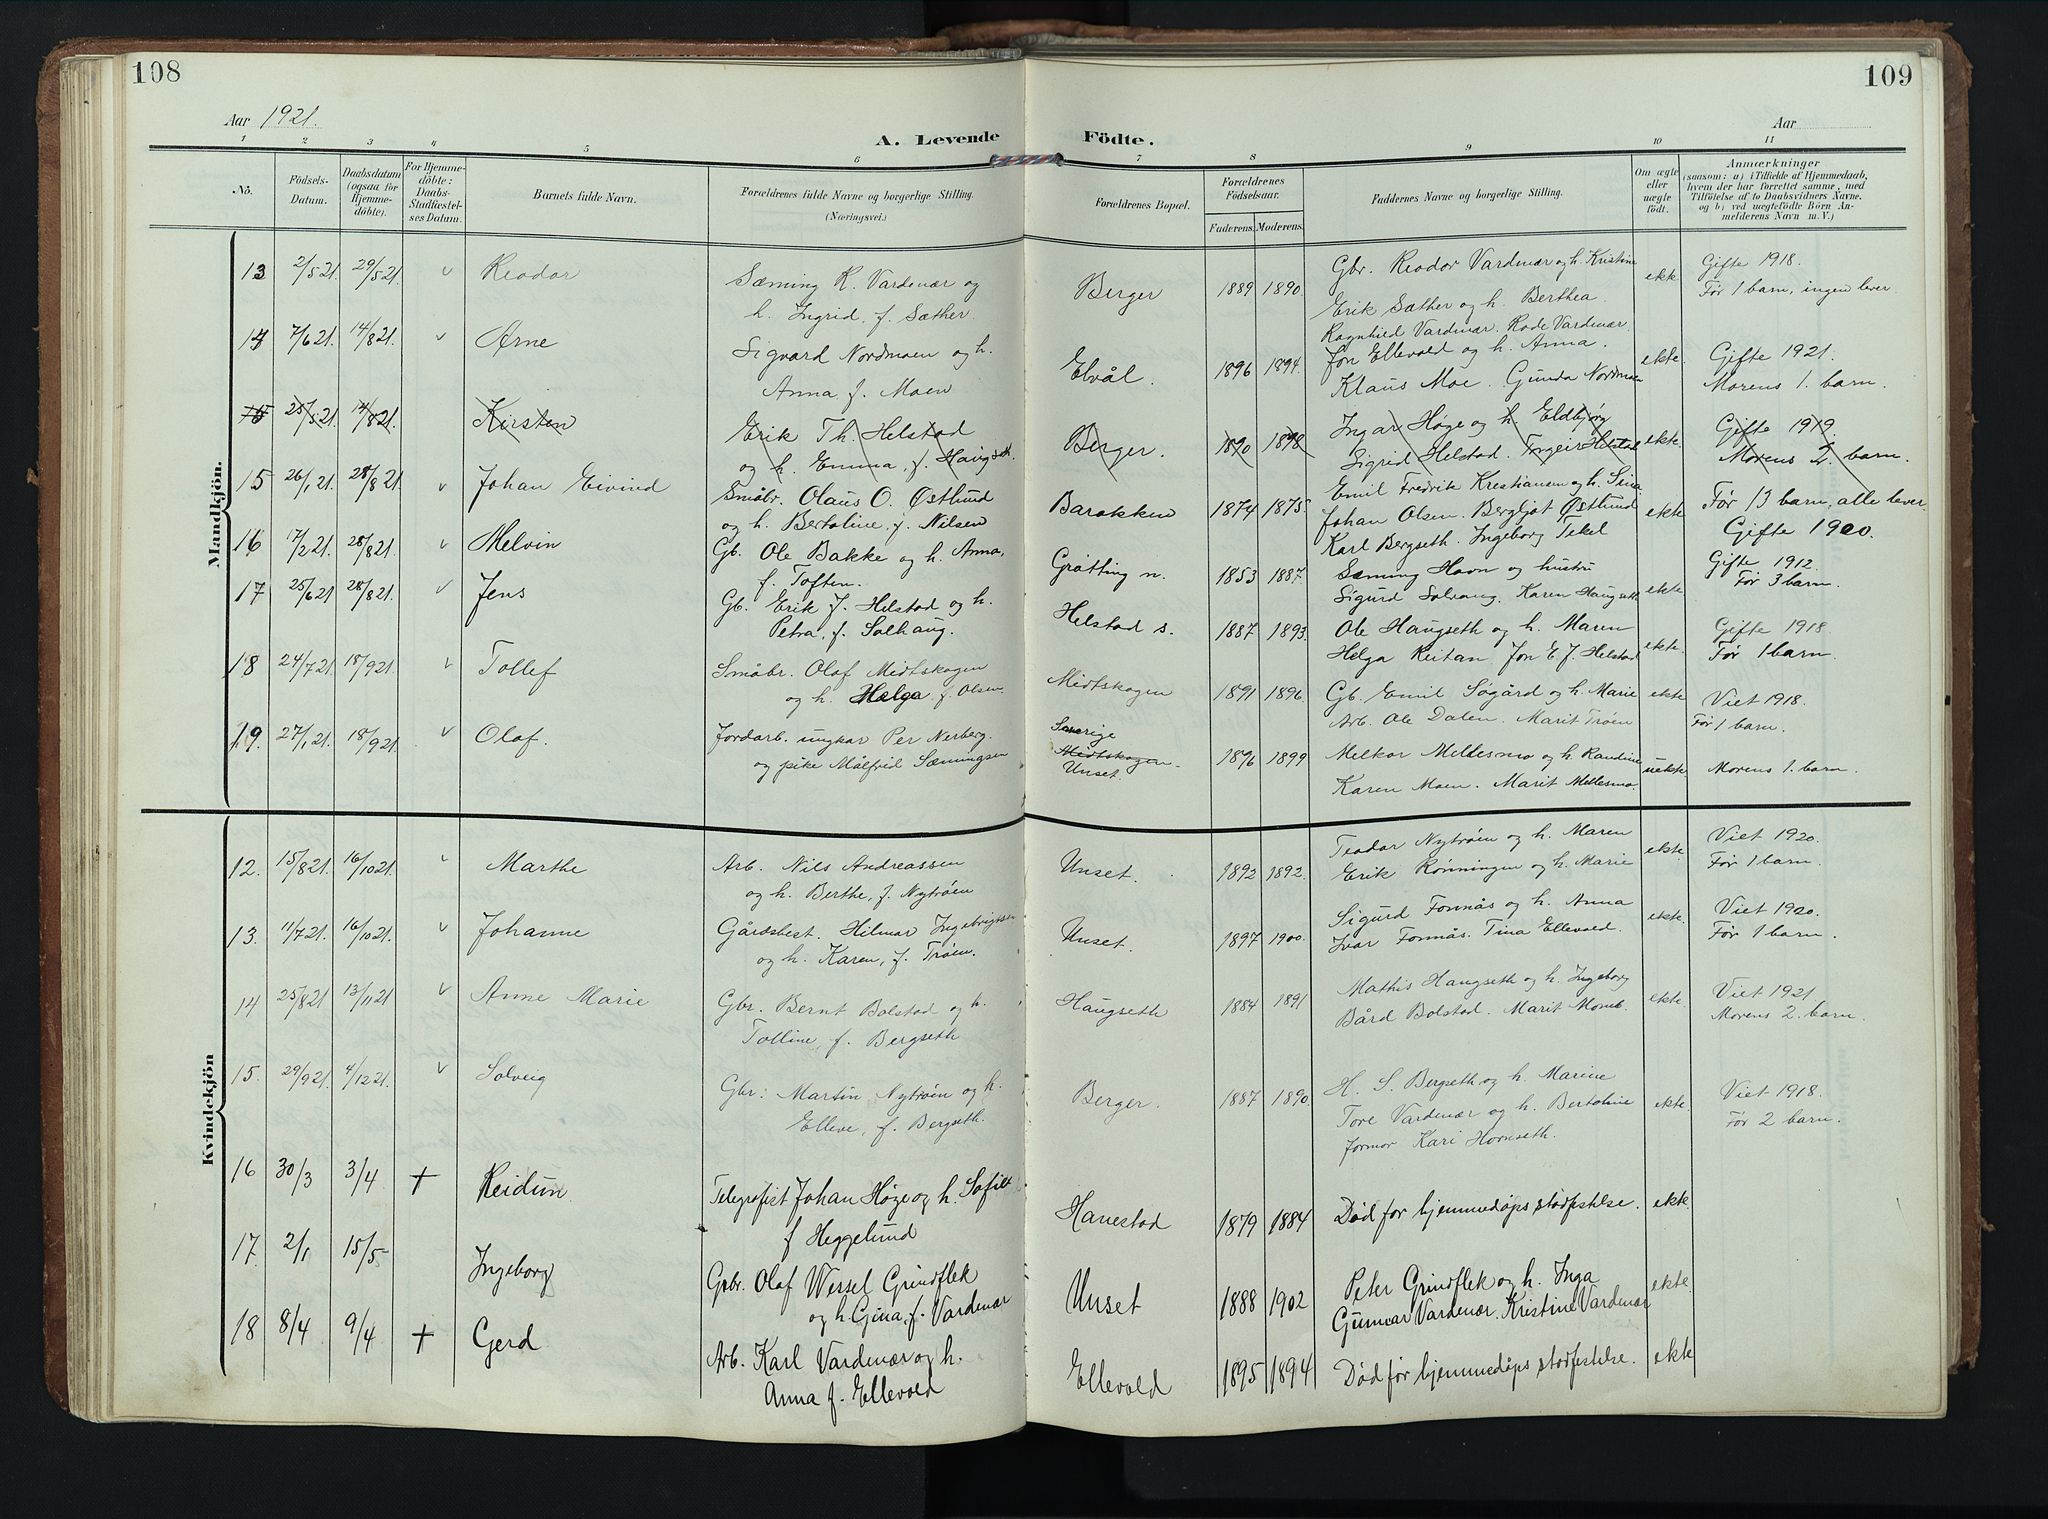 108
109
Aar 1921.
Aar
A. Levende Födte.
1 2 3 4 5 6 7 8 9 10 11
No.
Födsels-Datum.
Daabsdatum (ogsaa for Hjemmedöbte).
For Hjemmedöbte: Daabs-Stadfæstelses Datum.
Barnets fulde Navn.
Forældrenes fulde Navne og borgerlige Stilling. (Næringsvei.)
Forældrenes Bopæl.
Forældrenes Födselsaar.
Faderens. Moderens.
Faddernes Navne og borgerlige Stilling.
Om ægte eller uægte födt.
Anmærkninger
(saasom: a) i Tilfælde af Hjemmedaab, hvem der har forrettet samme, med Tilföielse af to Daabsvidners Navne. og b) ved uægtefödte Börn Anmelderens Navn m. V.)
Mandkjön.
13 2/5 21. 29/5 21. v Reodor Sæming R. Vardenær og h. Ingrid, f. Sæther Berger 1889 1890. Gbr. Reodor Vardenær og h. Kristine Erik Sæther og h. Berthea. Ragnhild Vardenær. Rode Vardenær. ekte Gifte 1918. Før 1 barn, ingen lever
14 7/6 21. 14/8 21. v Arne Sigvard Nordmoen og h. Anna, f. Moen Elvål. 1896 1894. Jon Ellevold og h. Anna. Klaus Moe. Gunda Nordmoen ekte Gifte 1921. Morens 1. barn.
15 25/5 21. 14/8 21. Kirsten Erik Th. Helstad og h. Emma, f. Haugseth. Berger. 1890 1898 Ingar Høge og h. Eldbjørg Sigrid Helstad. Torgeir Helstad ekte Gifte 1919. Morens 2. barn.
15 26/1 21. 28/8 21. v Johan Eivind Småbr. Olaus O. Østlund og h. Bertoline, f. Nilsen Barakken 1874 1875. Emil Fredrik Krestiansen og h. Sina Johan Olsen. Bergljot Østlund ekte Før 13 barn, alle lever Gifte 1900.
16 7/2 21. 28/8 21. v Melvin Gb. Ole Bakke og h. Anna, f. Toften. Grøtting n. 1853 1887. Karl Bergseth. Ingeborg Tekel Sæming Havn og hustru Sigurd Solvang. Karen Haugseth. ekte Gifte 1912. Før 3 barn.
17 25/6 21 28/8 21. v Jens Gb. Erik J. Helstad og h. Petra, f. Solhaug. Helstad s. 1887 1893. Ole Haugseth og h. Maren Helga Reitan, Jon E. J. Helstad ekte. Gifte 1918 Før 1 barn.
18 24/7 21. 18/9 21. v Tollef Småbr. Olaf Midtskogen og h. Helga f. Olsen. Midtskogen 1891 1896. Gb. Emil Søgård og h. Marie Arb. Ole Dalen. Marit Trøen ekte Viet 1918. Før 1 barn.
19. 27/1 21. 18/9 21. v Olaf. Jordarb. ungkar Per Nerberg. og pike Målfrid Sæmingsen Sverige Midtskogen. Unset. 1896 1899 Melkor Mellesmo og h. Randine Karen Moen. Marit Mellesmo. uekte Morens 1. barn.
Kvindekjön
12. 15/8 21. 16/10 21. v Marthe Arb. Nils Andreassen og h. Berthe, f. Nytrøen Unset. 1892 1892. Teodor Nytrøen og h. Maren Erik Rønningen og h. Marie ekte Viet 1920. Før 1 barn.
13. 11/7 21. 16/10 21. v Johanne Gårdsbest. Hilmar Ingebrigtsen og h. Karen, f. Trøen. Unset. 1897 1900. Sigurd Fonnås og h. Anna Ivar Fonnås. Tina Ellevold. ekte. Viet 1920. Før 1 barn.
14 25/8 21 13/11 21 v Anne Marie Gbr. Bernt Bolstad og h. Tolline, f. Bergseth Haugseth 1884 1891 Mathis Haugseth og h. Ingeborg Bård Bolstad. Marit Momb. ekte. Viet 1921. Morens 2. barn.
15. 29/9 21. 4/12 21. v Solveig Gbr: Martin Nytrøen og h. Elleve, f. Bergseth. Berger. 1887 1890. H. S. Bergseth og h. Marine Tore Vardenær og h. Bertoline formor Kari Hornseth. ekte. Viet 1918. Før 2 barn.
16 30/3 3/4 + Reidun Telegrafist Johan Høge og h. Sofie f Heggelund Hanestad 1879 1884 Død før hjemmedåps stadfestelse. ekte
17 2/1 15/5 Ingeborg Grbr. Olaf Wessel Grindflek og h. Gina, f. Vardenær Unset 1888 1902 Peter Grindflek og h. Inga Gunnar Vardenær. Kristine Vardenær ekte
18 8/4 9/4 + Gerd Arb. Karl Vardenær og h. Anna f. Ellevold Ellevold 1895 1894 Død før hjemmedåps stadfestelse. ekte